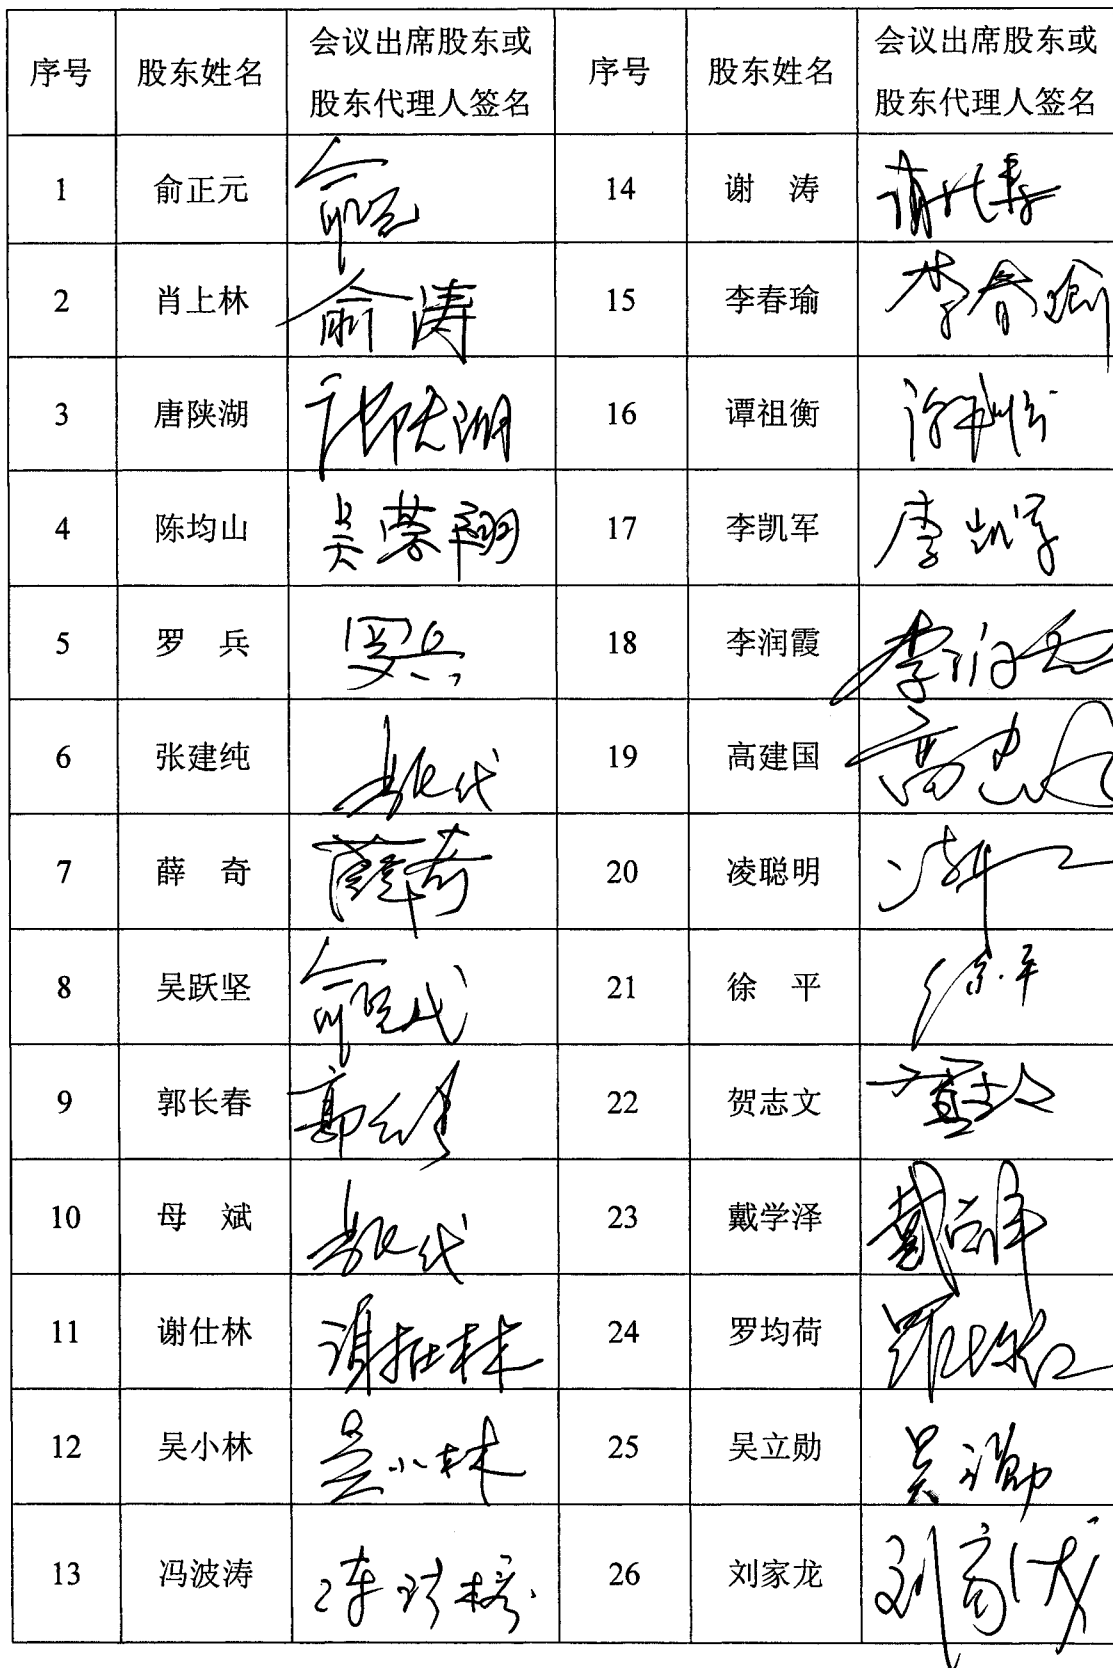 序号 股东姓名 会议出席股东或股东代理人签名 序号 股东姓名 会议出席股东或股东代理人签名
1 俞正元 14 谢 涛
2 肖上林 俞涛 15 李春瑜 李春瑜
3 唐陕湖 唐陕湖 16 谭祖衡
4 陈均山 吴蓉 17 李凯军 李凯军
5 罗 兵 罗兵 18 李润霞 李润霞
6 张建纯 19 高建国 高建国
7 薛 奇 薛奇 20 凌聪明
8 吴跃坚 21 徐 平 徐平
9 郭长春 郭长春 22 贺志文
10 母 斌 23 戴学泽 戴学泽
11 谢仕林 谢仕林 24 罗均荷
12 吴小林 吴小林 25 吴立勋 吴立勋
13 冯波涛 26 刘家龙 刘家龙